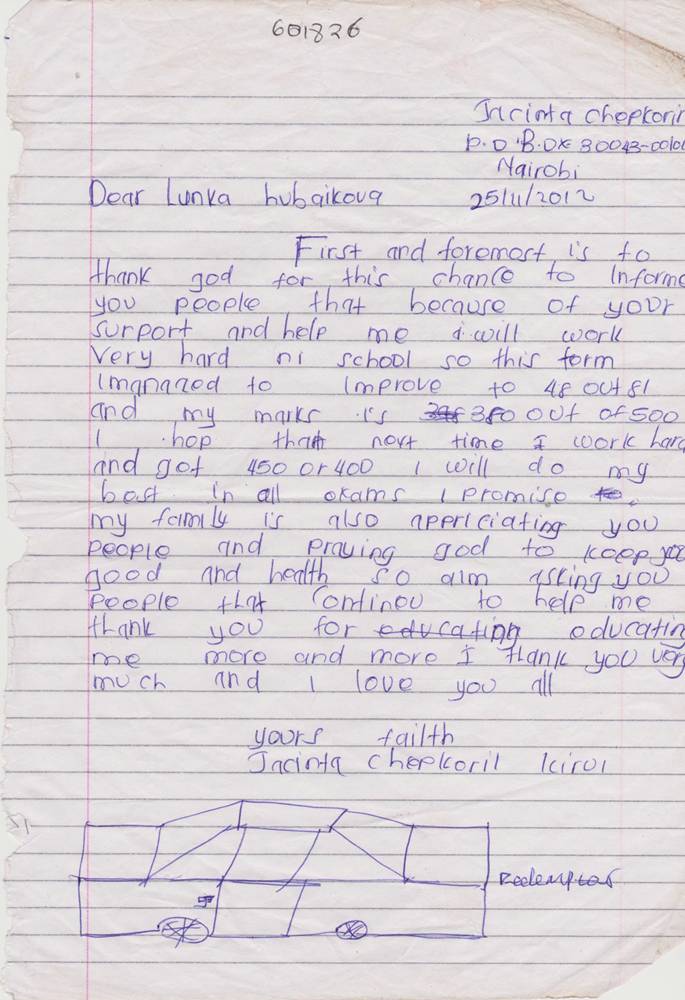 601826
Jacinta chepkoril
P.O B.OX 30043-00100
Nairobi
Dear Lunka hubaikova 25/11/2012
First and foremost is to
thank god for this chance to informe
you people that because of your
surport and help me i will work
very hard ni school so this form
I manazed to improve to 48 out 81
and my marks is 380 out of 500
I hop that next time I work hard
and got 450 or 400 I will do my
best in all exams I promise
my family is also appriciating you
people and praying god to keep you
good and health so aim asking you
people that Contineu to help me
thank you for educating educating
me more and more I thank you very
much and I love you all
yours failth
Jacinta chepkoril kirui
Redemptor